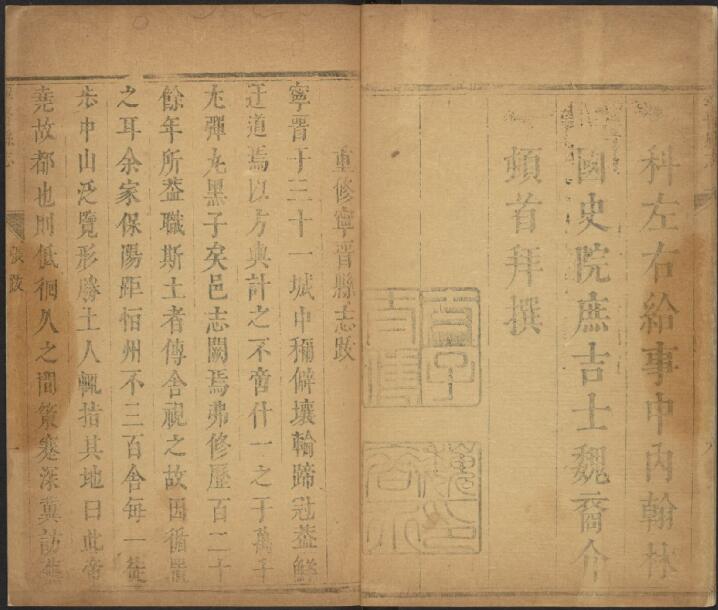 科左右給事中內翰林
國史院庶吉士魏裔介
頓首拜撰
重修寧晉縣志跋
寧晉于三十一城中稱僻壤輪蹄冠蓋鮮
迂道焉以方輿計之不啻什一之于萬千
尤彈丸黑子矣邑志闕焉弗修歷百二十
餘年所蓋職斯土者傳舍視之故因循置
之耳余家保陽距恒州不三百舍每一徒
步中山泛覽形勝土人輒指其地曰此帝
堯故都也則低徊久之間策蹇深冀訪
張跋
一